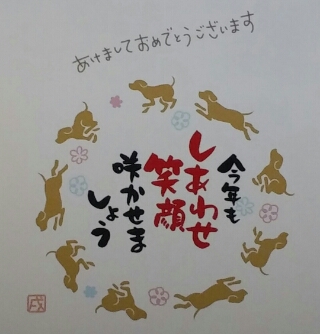 あけましておめでとうございます
今年も
しあわせ
笑顔
咲かせま
しょう
戌